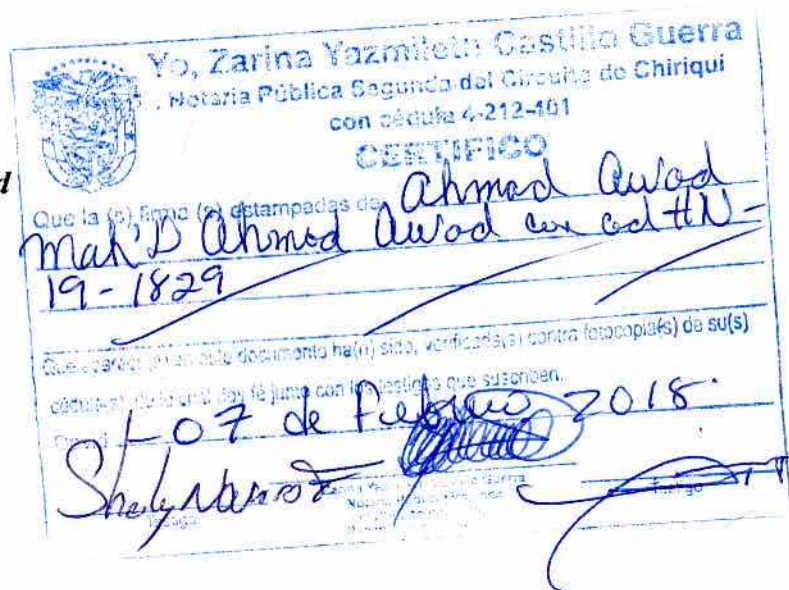 Yo, Zarina Yazmileth Castillo Guerra
, Notaria Pública Segunda del Circuito de Chiriqui
con cédula 4-212-401
CERTIFICO
d
Que la (s) firma (s) estampadas de Ahmad Awad
Mah'D Ahmad Awad con ced # N-
19-1829
Que aparece(n) en este documento ha(n) sido, verificada(s) contra fotocopia(s) de su(s)
cédula(s), de lo cual doy fé junto con los testigos que suscriben.
07 de Febrero 2018.
Testigo